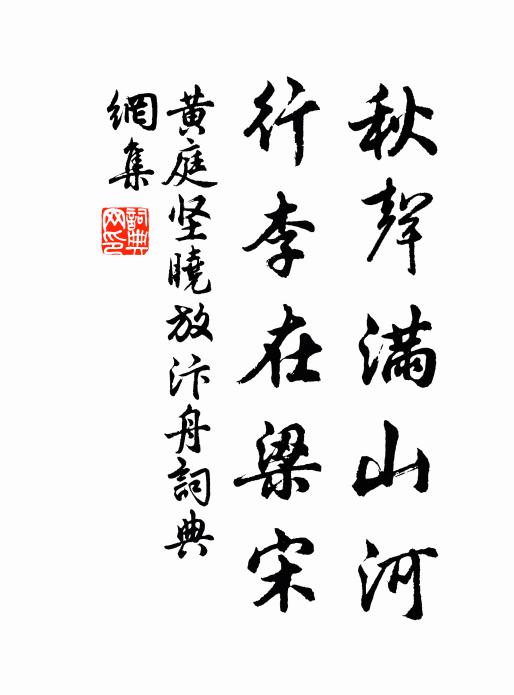 秋聲滿山河
行李在梁宋
黄庭坚曉放汴舟詞典
網集
詞典
网印